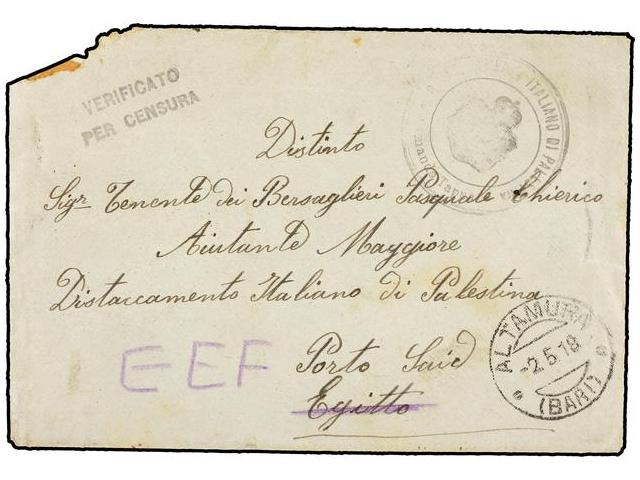 VERIFICATO
PER CENSURA
ITALIANO DI PAL
Distinto
Sigr Tenente dei Bersaglieri Pasquale Chierico
Aiutante Maggiore
Distaccamento Italiano di Palestina
EEF Porto Said
Egitto
ALTAMURA
-2.5.18
(BARI)